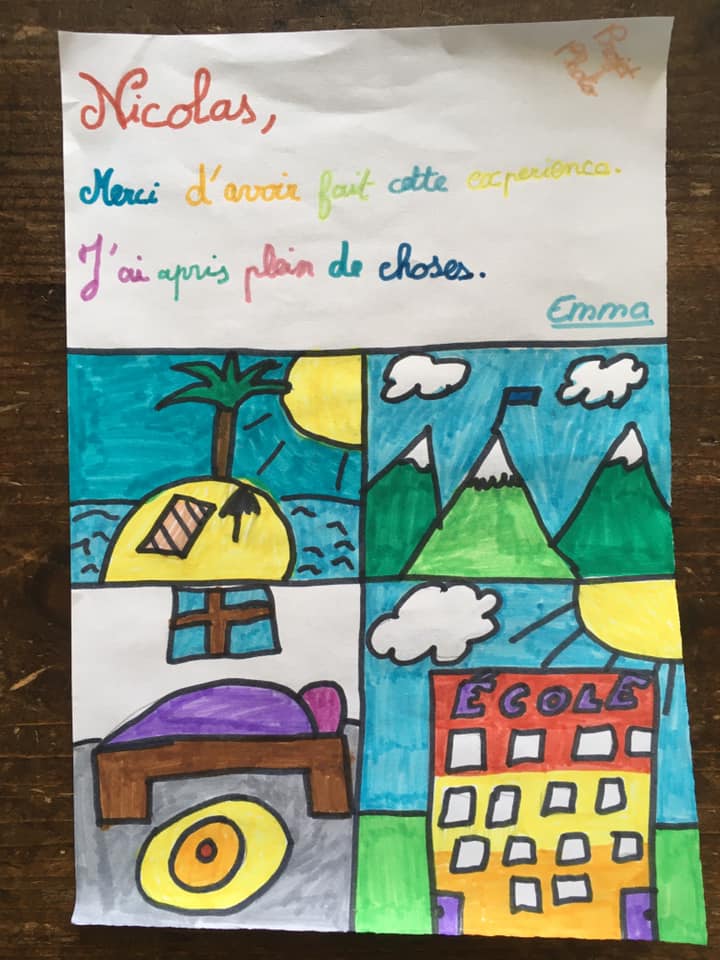 Nicolas,
Merci d'avoir fait cette experience.
J'ai apris plein de choses.
Emma
ÉCOLE